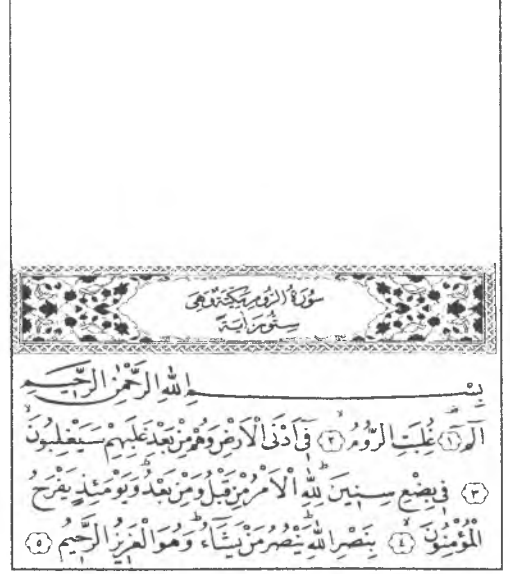 سُورَةُ الرُّومِ مَكِّيَّةٌ وَهِيَ
سِتُّونَ اٰيَةً
بِسْــــمِ اللّٰهِ الرَّحْمٰنِ الرَّحٖيمِ
الٓمٓ ﴿١﴾ غُلِبَتِ الرُّومُۙ ﴿٢﴾ فٖٓى اَدْنَى الْاَرْضِ وَهُمْ مِنْ بَعْدِ غَلَبِهِمْ سَيَغْلِبُونَۙ
﴿٣﴾ فٖى بِضْعِ سِنٖينَؕ لِلّٰهِ الْاَمْرُ مِنْ قَبْلُ وَمِنْ بَعْدُؕ وَيَوْمَئِذٍ يَفْرَحُ
الْمُؤْمِنُونَۙ ﴿٤﴾ بِنَصْرِ اللّٰهِؕ يَنْصُرُ مَنْ يَشَٓاءُؕ وَهُوَ الْعَزٖيزُ الرَّحٖيمُ ﴿٥﴾